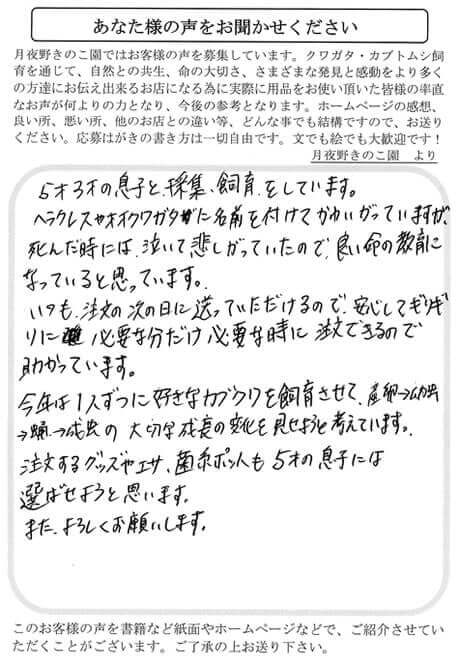 あなた様の声をお聞かせください
月夜野きのこ園ではお客様の声を募集しています。クワガタ・カブトムシ飼
育を通じて、自然との共生、命の大切さ、さまざまな発見と感動をより多く
の方達にお伝え出来るお店になる為に実際に用品をお使い頂いた皆様の率直
なお声が何よりの力となり、今後の参考となります。ホームページの感想、
良い所、悪い所、他のお店との違い等、どんな事でも結構ですので、お送り
ください。応募はがきの書き方は一切自由です。文でも絵でも大歓迎です！
月夜野きのこ園　より
5才3才の息子と、採集、飼育、をしています。
ヘラクレスやオオクワガタに名前を付けてかわいがっていますが、
死んだ時には、泣いて悲しがっていたので、良い命の教育に
なっていると思っています。
いつも、注文の次の日に送っていただけるので、安心してギリギ
リに 必要な分だけ必要な時に注文できるので
助かっています。
今年は1人ずつに好きなカブクワを飼育させて、産卵→幼虫
→蛹→成虫の 大切な成長の変化を見せようと考えています。
注文するグッズやエサ、菌糸ポットも5才の息子には
選ばせようと思います。
また、よろしくお願いします。
このお客様の声を書籍など紙面やホームページなどで、ご紹介させてい
ただくことがございます。ご了承の上お送り下さい。